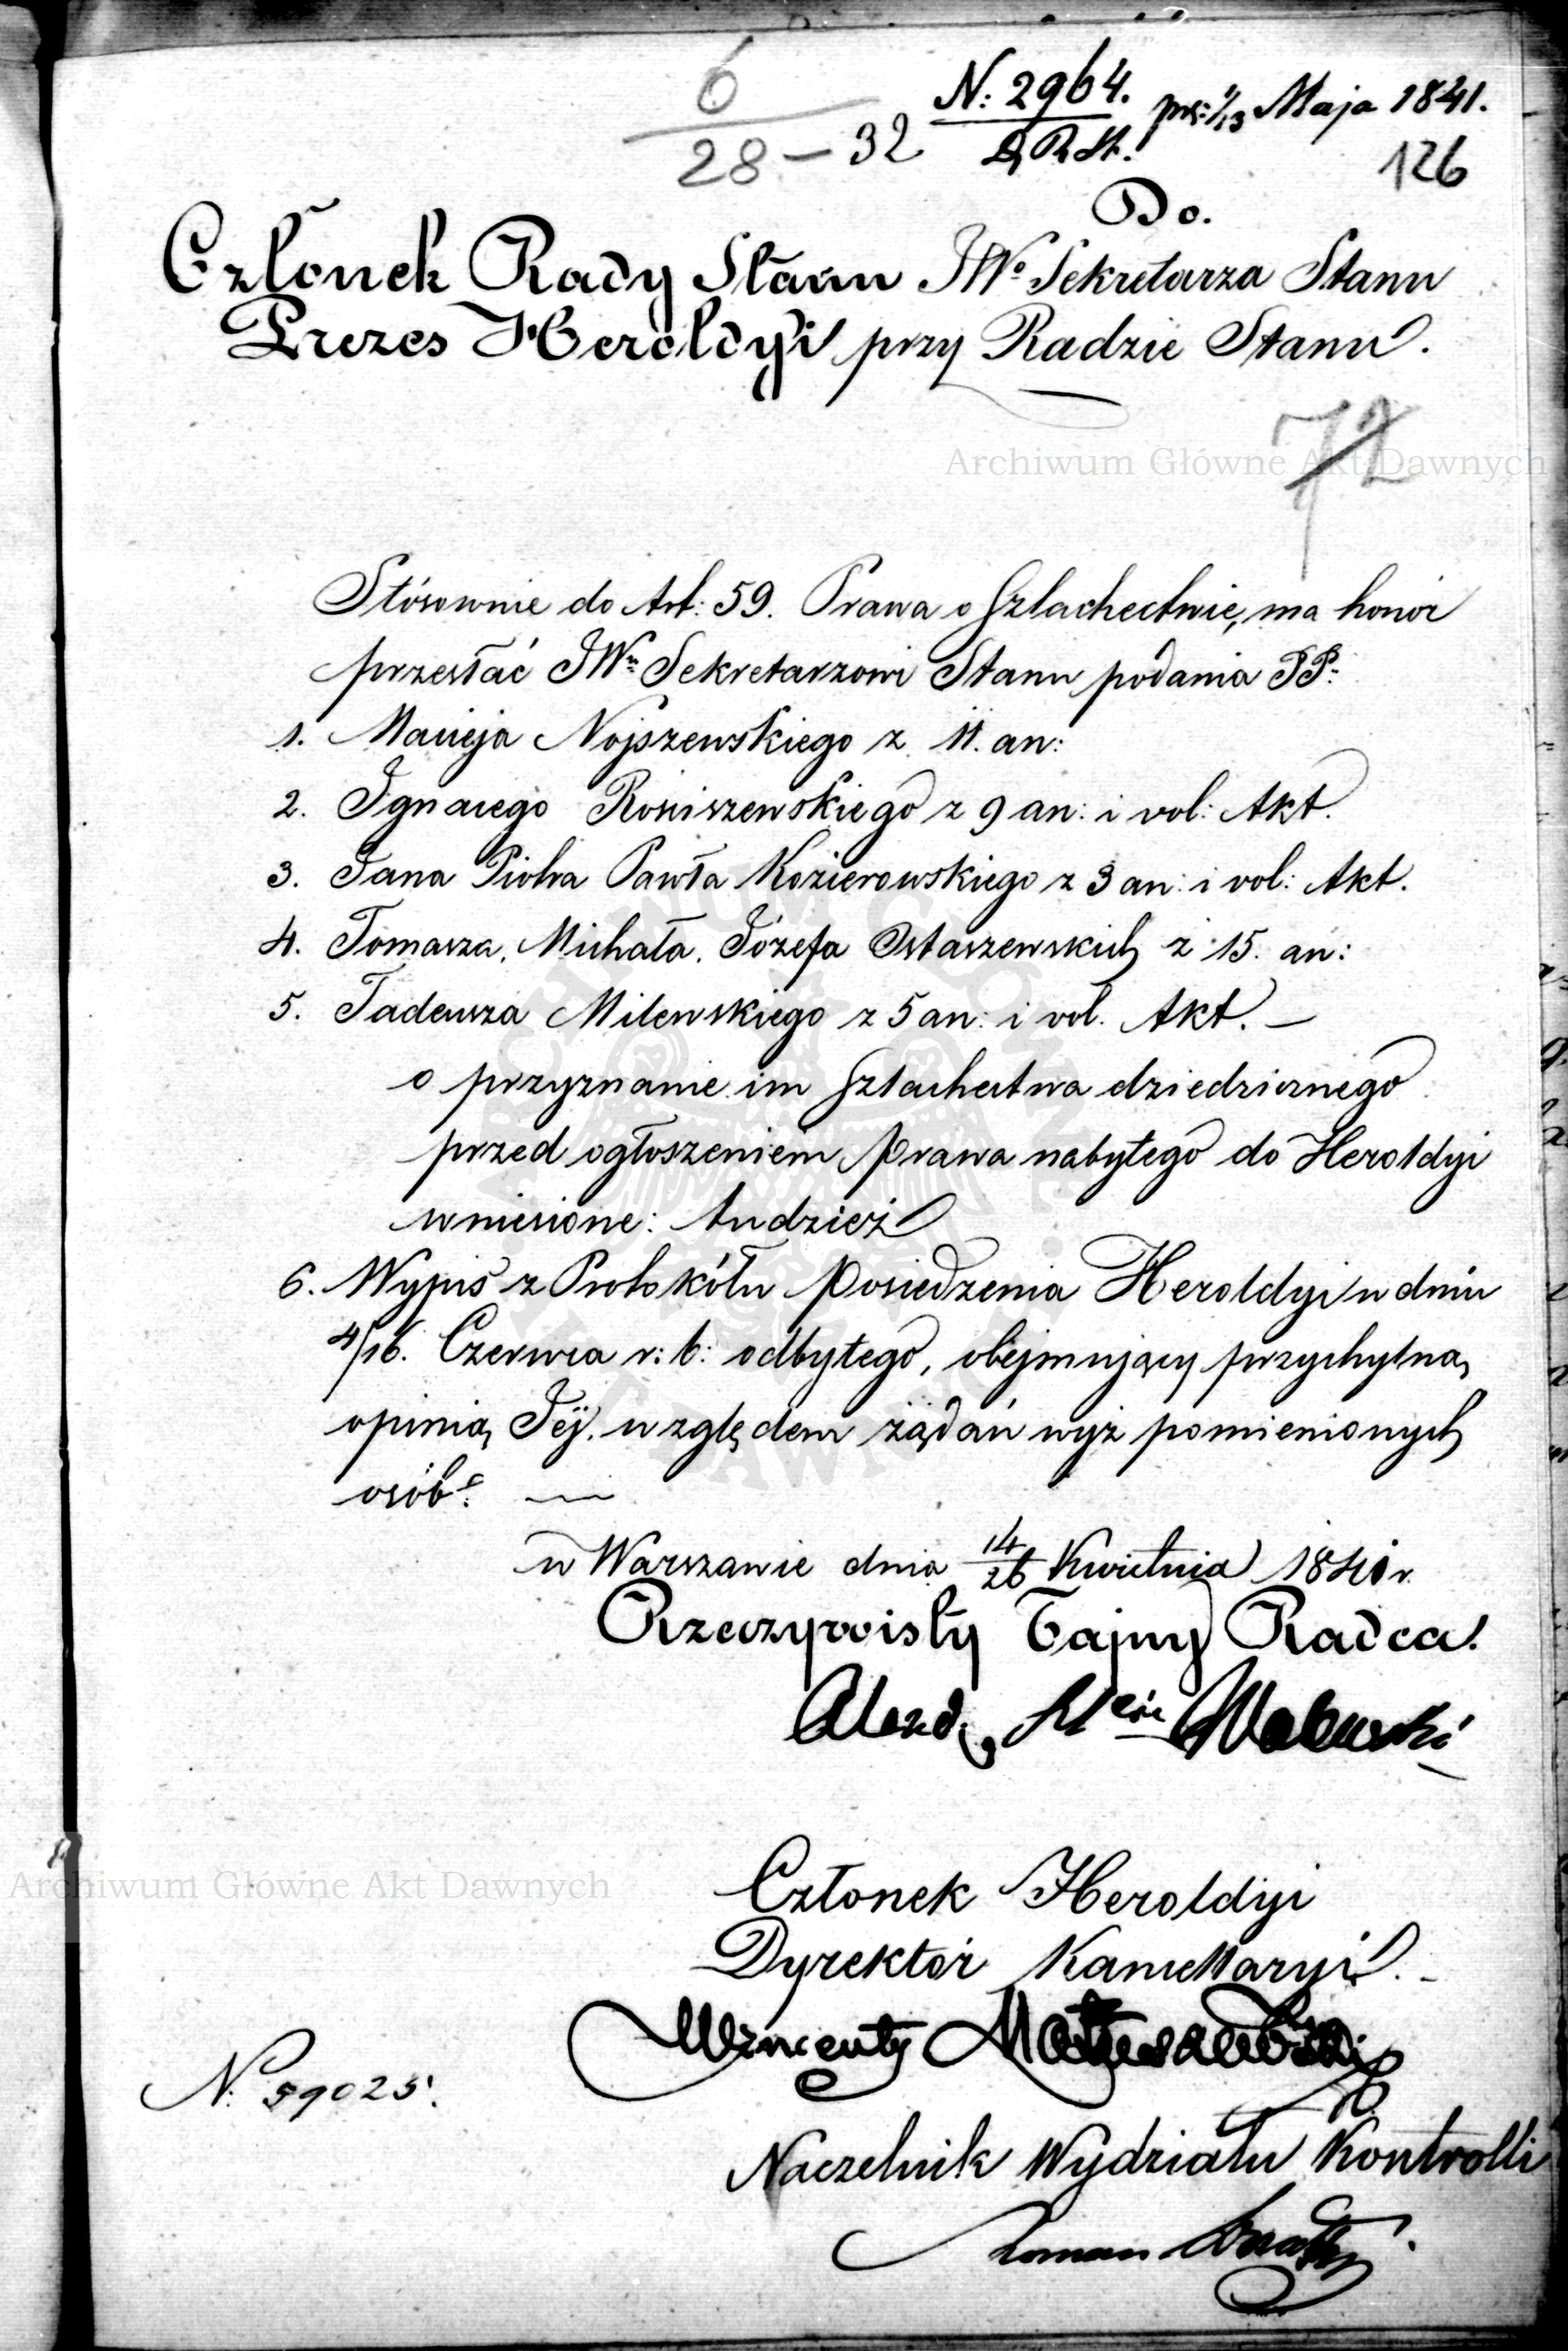 6
28 – 32
N: 2964.
D. R. St.
prs: 1/13 Maja 1841.
126
Do.
Członek Rady Stanu
JWo Sekretarza Stanu
Prezes Heroldyi
przy Radzie Stanu.
72
Archiwum Główne Akt Dawnych
Stósownie do Art: 59. Prawa o Szlachectwie, ma honor
przesłać JWmu Sekretarzowi Stanu podania PP:
1. Macieja Nojszewskiego z 11. an:
2. Ignacego Rościszewskiego z 9 an: i vol: Akt.
3. Jana Piotra Pawła Kozierowskiego z 3 an: i vol: Akt.
4. Tomasza, Michała, Józefa Ostaszewskich z 15. an:
5. Tadeusza Milewskiego z 5 an: i vol. Akt. –
o przyznanie im Szlachectwa dziedzicznego
przed ogłoszeniem Prawa nabytego do Heroldyi
wniesione: tudzież
6. Wypis z Protokółu Posiedzenia Heroldyi w dniu
4/16. Czerwca r: b: odbytego, obejmujący przychylną
opinią Jéj. względem żądań wyż pomienionych
osób.
w Warszawie dnia 14/26 Kwietnia 1841 r.
Rzeczywisty Tajny Radca.
Alexd. Walewski
Archiwum Główne Akt Dawnych
Członek Heroldyi
Dyrektor Kancellaryi. –
Wincenty
N: 59025.
Naczelnik Wydziału Kontrolli
Roman